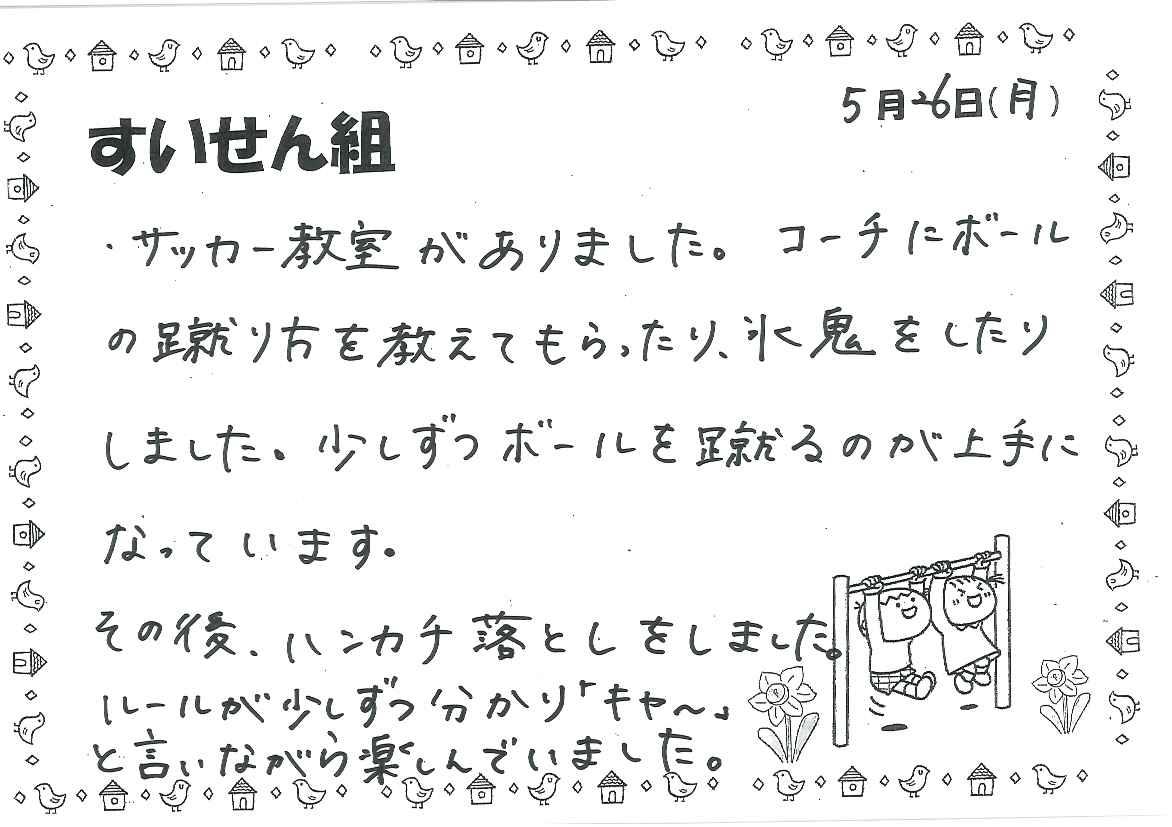 5月26日(月)
すいせん組
・サッカー教室がありました。コーチにボール
の蹴り方を教えてもらったり、氷鬼をしたり
しました。少しずつボールを蹴るのが上手に
なっています。
その後、ハンカチ落としをしました。
ルールが少しずつ分かり「キャ〜」
と言いながら楽しんでいました。